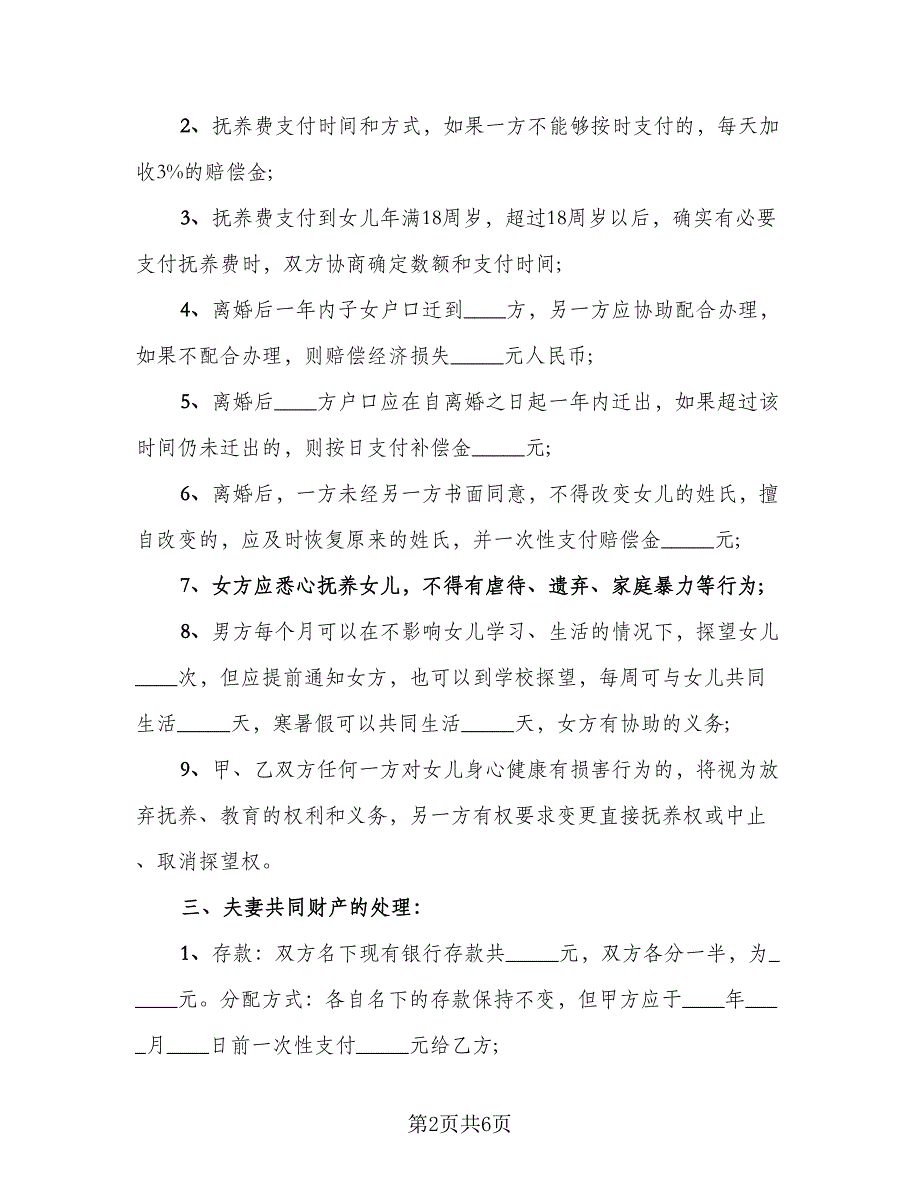 2、抚养费支付时间和方式，如果一方不能够按时支付的，每天加
收3%的赔偿金;
3、抚养费支付到女儿年满18周岁，超过18周岁以后，确实有必要
支付抚养费时，双方协商确定数额和支付时间;
4、离婚后一年内子女户口迁到____方，另一方应协助配合办理，
如果不配合办理，则赔偿经济损失_____元人民币;
5、离婚后____方户口应在自离婚之日起一年内迁出，如果超过该
时间仍未迁出的，则按日支付补偿金_____元;
6、离婚后，一方未经另一方书面同意，不得改变女儿的姓氏，擅
自改变的，应及时恢复原来的姓氏，并一次性支付赔偿金_____元;
7、女方应悉心抚养女儿，不得有虐待、遗弃、家庭暴力等行为;
8、男方每个月可以在不影响女儿学习、生活的情况下，探望女儿
____次，但应提前通知女方，也可以到学校探望，每周可与女儿共同
生活_____天，寒暑假可以共同生活_____天，女方有协助的义务;
9、甲、乙双方任何一方对女儿身心健康有损害行为的，将视为放
弃抚养、教育的权利和义务，另一方有权要求变更直接抚养权或中止
、取消探望权。
三、夫妻共同财产的处理：
1、存款：双方名下现有银行存款共_____元，双方各分一半，为_
____元。分配方式：各自名下的存款保持不变，但甲方应于____年___
_月____日前一次性支付_____元给乙方;
第2页共6页